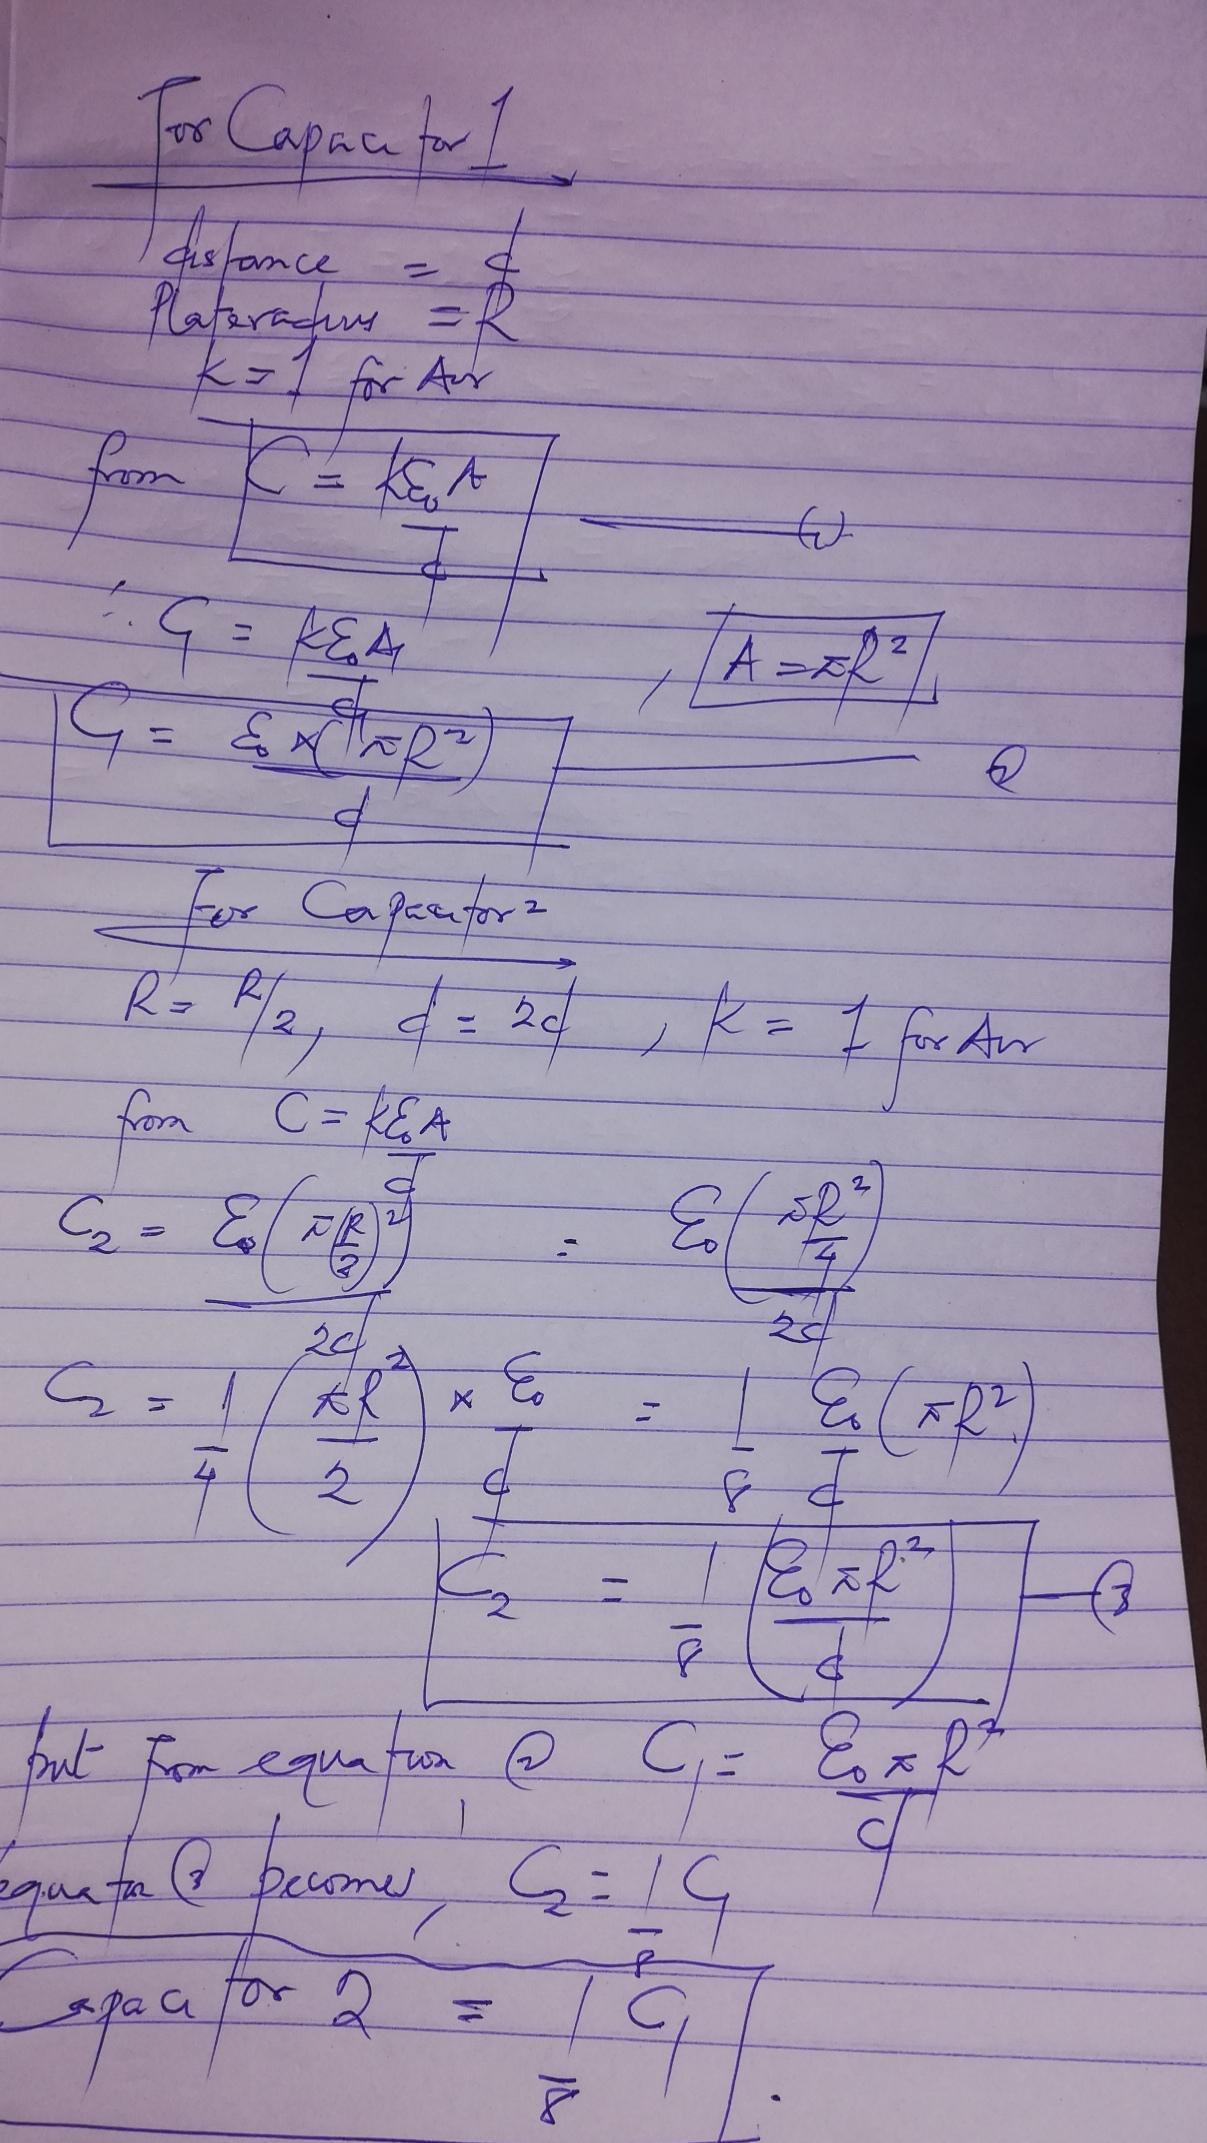 For Capacitor 1
distance = d
Plate radius = R
k = 1 for Air
from C = kε₀A/d —— (1)
∴ C₁ = kε₀A₁/d₁ , A = πR²
C₁ = ε₀ × (πR²)/d —— (2)
For Capacitor 2
R = R/2, d = 2d, k = 1 for Air
from C = kε₀A/d
C₂ = ε₀(π(R/2)²)/2d = ε₀(πR²/4)/2d
C₂ = 1/4 (πR²/2) × ε₀/d = 1/8 ε₀/d (πR²)
C₂ = 1/8 (ε₀πR²/d) —— (3)
but from equation (2) C₁ = ε₀πR²/d
equation (3) becomes, C₂ = 1/8 C₁
Capacitor 2 = 1/8 C₁.